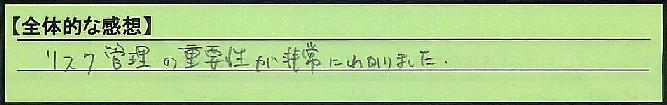 【全体的な感想】
リスク管理の重要性が非常にわかりました.